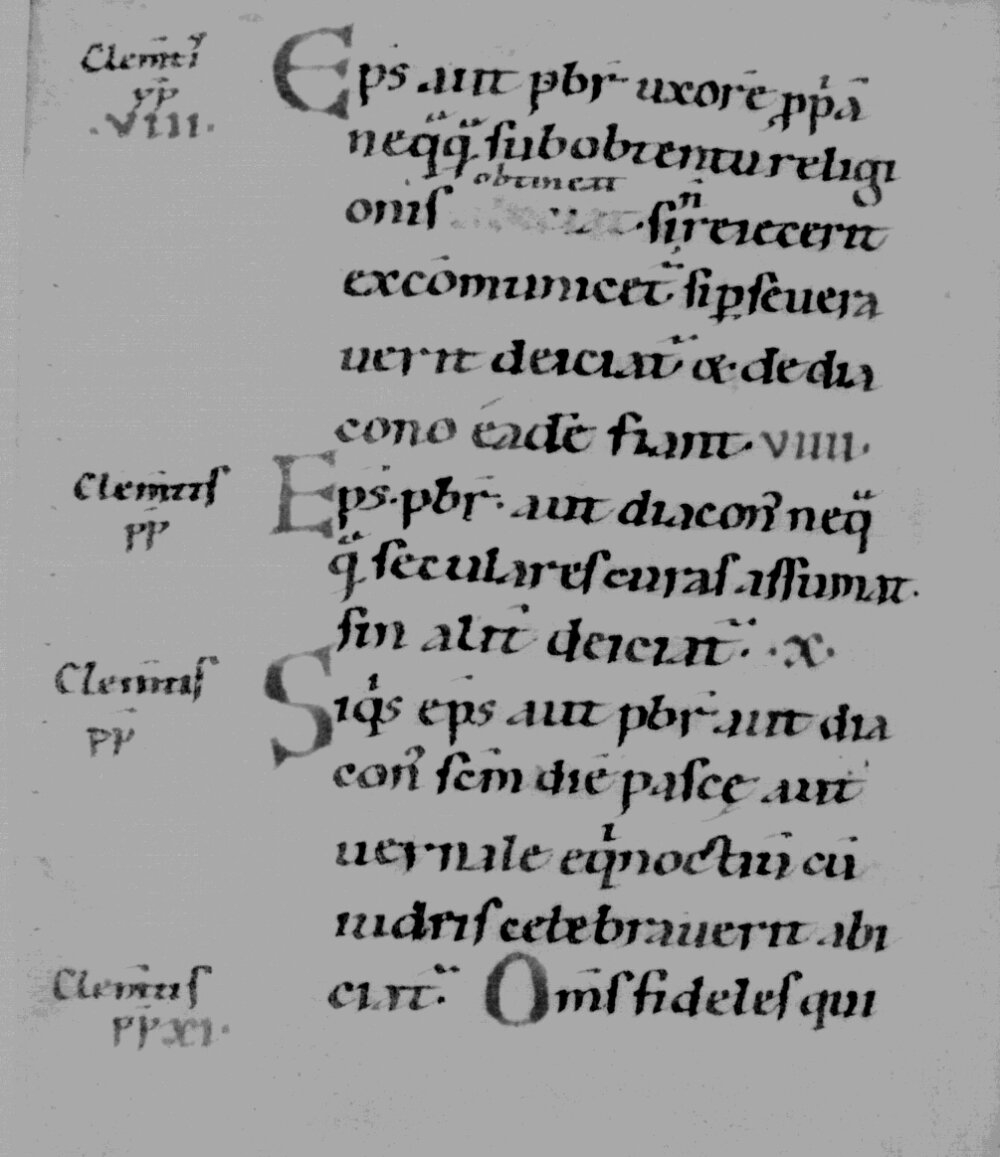 Clem̄tꝭ
pp̄
.VIII.
Ep̄s aut p̄br̄ uxorē ꝓpͥā
neqͣqͣ sub obtentu religi
onis obtineat . si ñ reiecerit
excōmunicet᷑ si ꝑseuera
uerit deiciat᷑ & de dia
cono eadē fiant. VIIII.
Clem̄tis
pp̄
Ep̄s. p̄br̄. aut diacon᷒ neqͣ
qͣ seculares curas assumat.
sin alit̄ deiciat᷑. .X.
Clem̄tis
pp̄
Siqͥs ep̄s aut p̄br̄ aut dia
con᷒ sc̄m diē pascę aut
uernale eqͥnoctiū cū
iudeis celebrauerit abi
ciat᷑. Om̄s fideles qui
Clem̄tis
pp̄ XI.